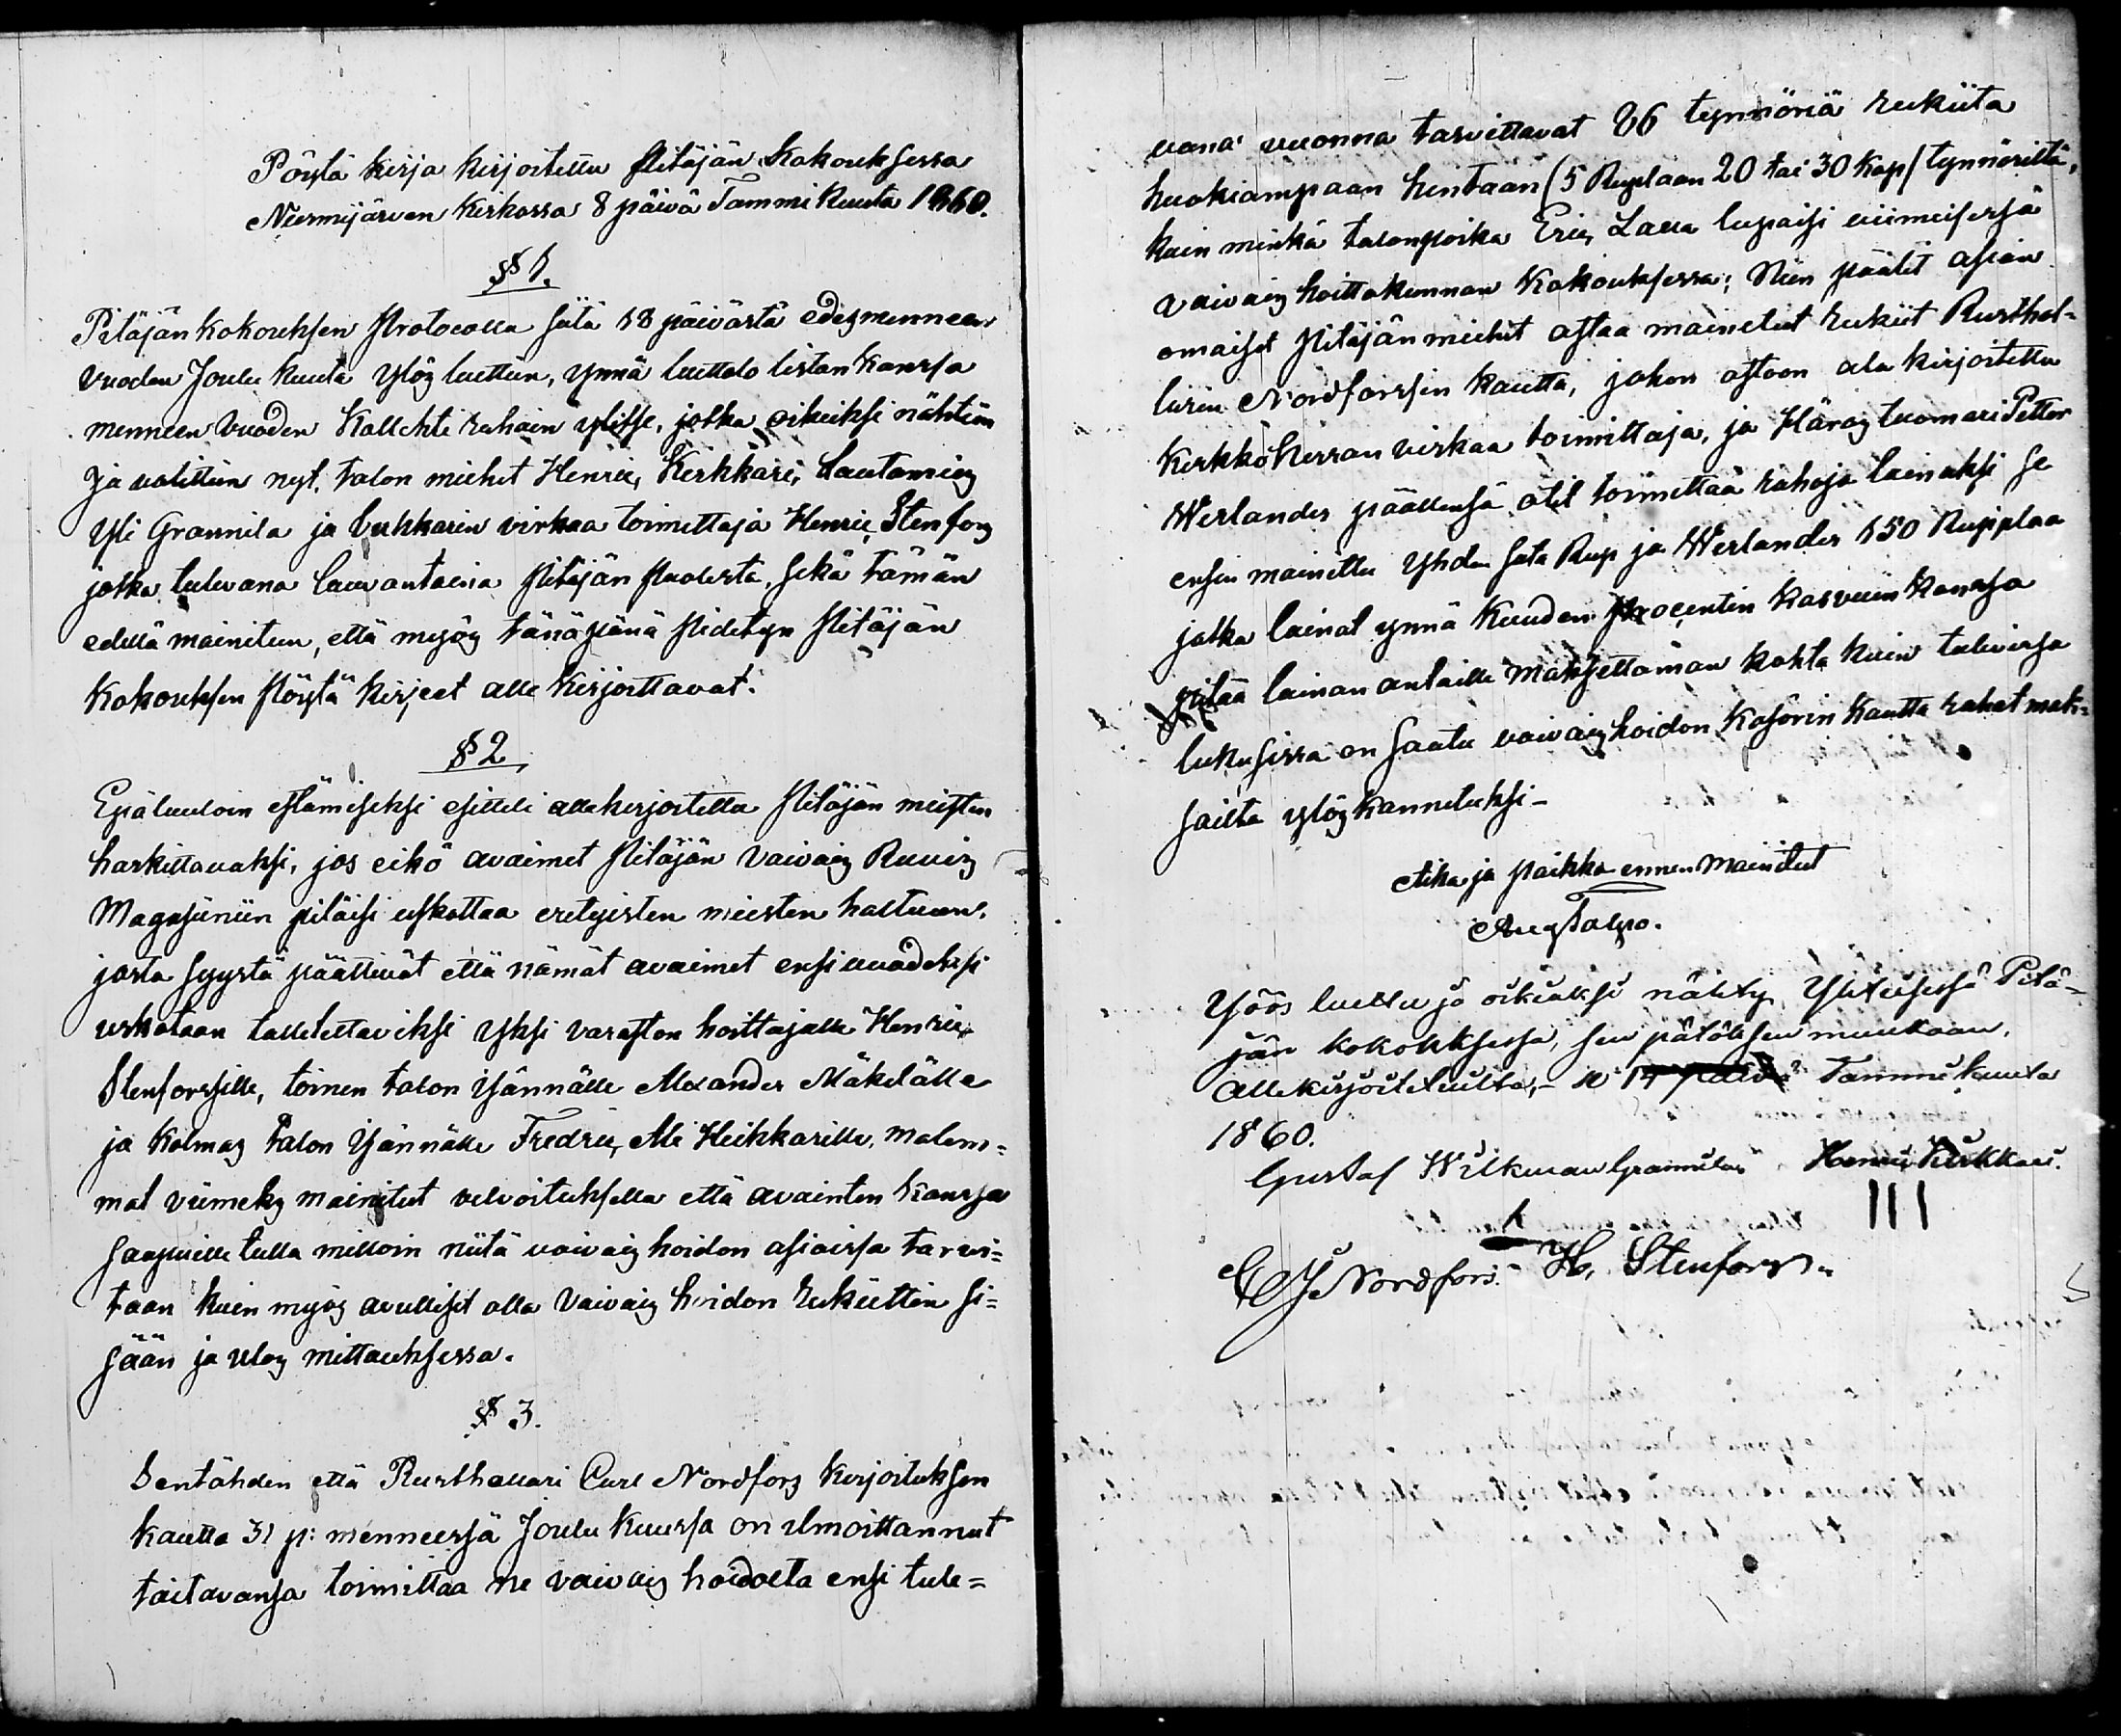 Pöytä kirja kirjoitettu Pitäjän Kokouksessa
Nurmijärven Kirkossa 8 päivä Tammi Kuuta 1860.
§ 1.
Pitäjän kokouksen Protocolla siitä 18 päivästä edesmenneen
vuoden Joulu kuuta ylös luettiin, ynnä luettelo listan kanssa
menneen vuoden Kollehti rahain ylitse, jotka oikeiksi nähtiin
ja valittiin nyt, talon miehet Henric Kirkkari, Lautamies
Yli Grannila ja lukkarin virkaa toimittaja Henric Stenfors
jotka tulevana lauvantaina Pitäjän puolesta, sekä tämän
edellä mainitun, että myös tänäpänä pidetyn Pitäjän
Kokouksen Pöytä kirjeet alle kirjoittavat.
§ 2
Epäluuloin estämiseksi esitteli allekirjoitettu Pitäjän miesten
harkittavaksi, jos eikö avaimet Pitäjän Vaivais Ruuis
Magasiiniin pitäisi uskottaa erityisten miesten haltuun,
josta syystä päättivät että nämät avaimet ensi vuodeksi
uskotaan talletettaviksi yksi varaston hoittajalle Henric
Stenforssille, toinen talon Isännälle Alexander Mäkelälle
ja kolmas talon Isännälle Fredric Ali Heikkarille, molem=
mat viimeks mainitut velvoituksella että avainten kanssa
saapuville tulla milloin niitä vaivais hoidon asioissa tarvi=
taan kuin myös avulliset olla Vaivais hoidon rukiitten si=
sään ja ulos mittauksessa.
§ 3.
Sentähden että Rusthollari Carl Nordfors kirjoituksen
kautta 31 p: menneessä Joulu kuussa on ilmoittannut
taitavansa toimittaa ne vaivais hoidolta ensi tule=
vana vuonna tarvittavat 26 tynnöriä rukiita
huokiampaan hintaan (5 Ruplaan 20 tai 30 Kop/ tynnöriltä,
kuin minkä talonpoika Eric Laua lupaisi viimeisessä
vaivais hoittokunnan kokouksessa; Niin päätit asian
omaiset Pitäjän miehet ostaa mainitut rukiit Rusthol=
larin Nordforssin kautta, johon ostoon ala kirjoitettu
Kirkkoherran virkaa toimittaja, ja Häras tuomari Petter
Werlander päällensä otit toimittaa rahoja lainaksi se
ensin mainittu yhden sata Rup ja Werlander 150 Rupplaa
jotka lainat ynnä kuuden procentin kasvuin kanssa
pitää lainan antaille maksettaman kohta kuin tulevissa
lukusissa on saatu vaivais hoidon Kasörin kautta rahat mak=
sailta ylös kannetuksi –
Aika ja paikka ennen mainitut
Aug Talpo.
Ylös luettu ja oikiaksi nähty Yhteisessä Pitä-
jän kokouksessa, sen päätöksen muukaan,
allekirjoitetuilta, – Tammikuuta
1860.
Gustaf Wilkman Grannila Henric Kirkkari.
C J Nordfors. H. Stenfors